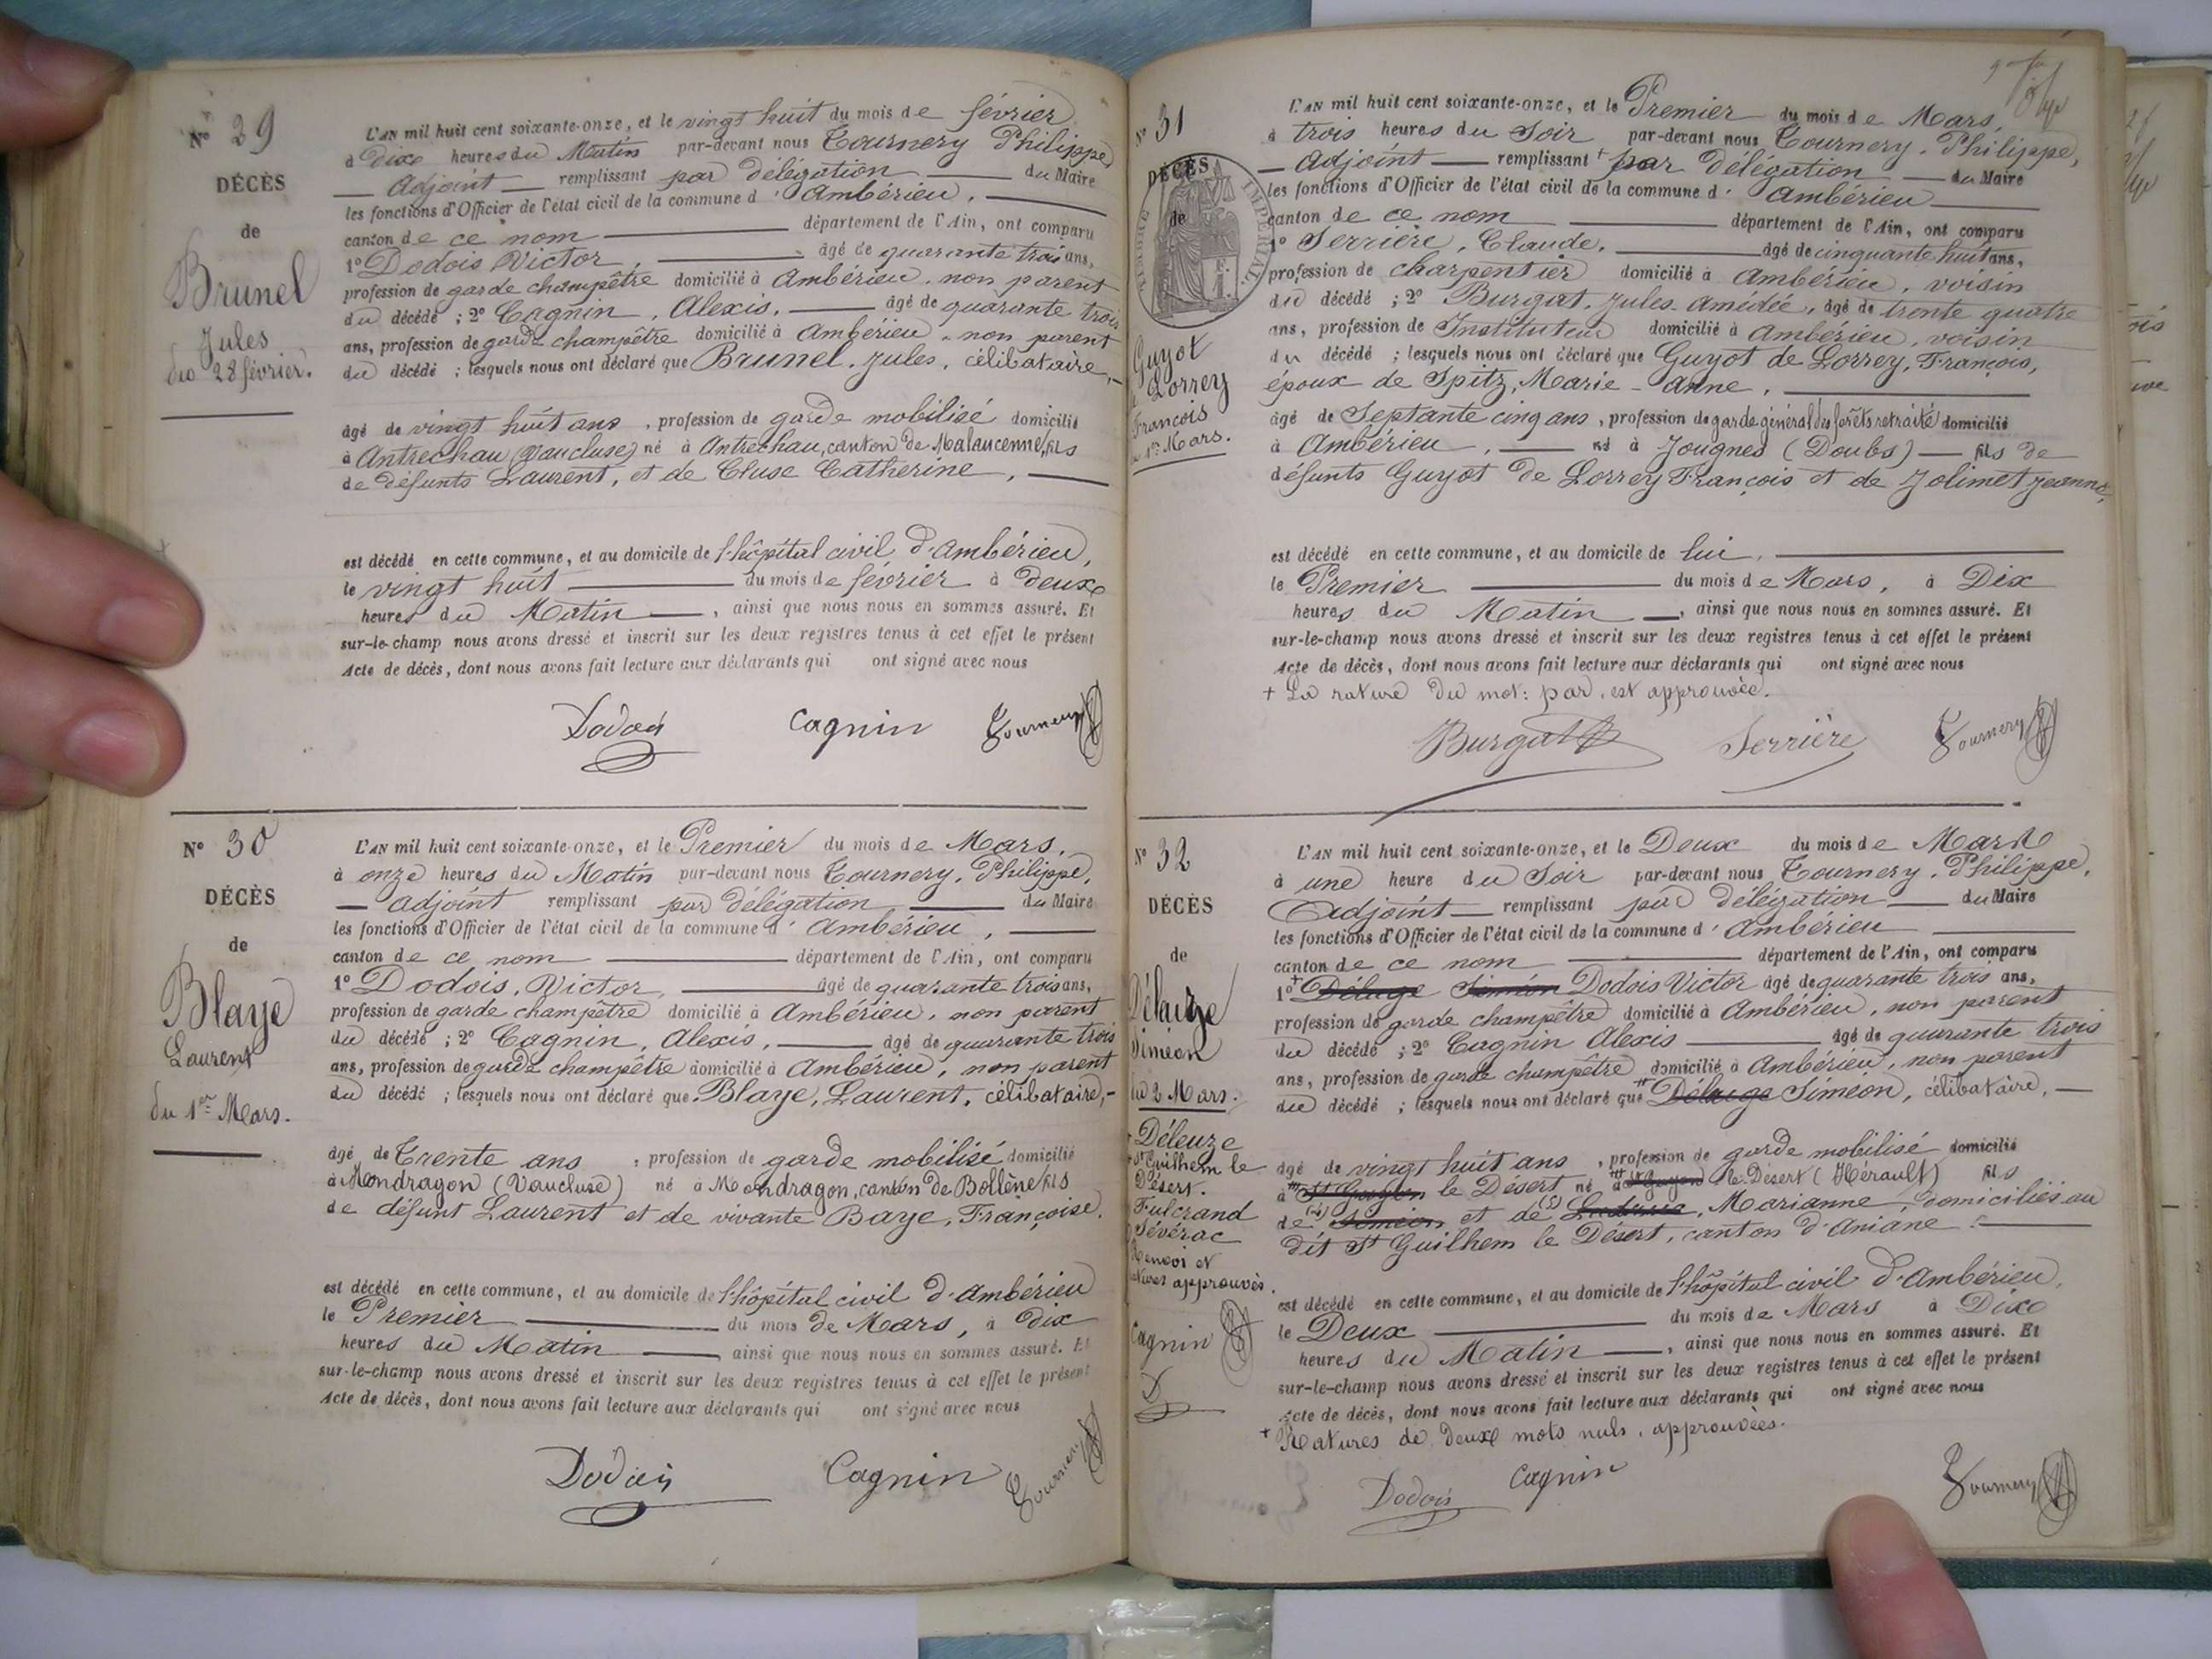 N° 29
DÉCÈS
de
Brunel
Jules
du 28 février.
L'AN mil huit cent soixante-onze, et le vingt huit du mois de février
à Dix heures du Matin par-devant nous Tournery Philippe
Adjoint remplissant par délégation du Maire
les fonctions d'Officier de l'état civil de la commune d'Ambérieu,
canton de ce nom département de l'Ain, ont comparu
1° Dodois Victor, âgé de quarante trois ans,
profession de garde champêtre domicilié à Ambérieu, non parent
du décédé ; 2° Cagnin, Alexis, âgé de quarante trois
ans, profession de garde champêtre domicilié à Ambérieu, non parent
du décédé ; lesquels nous ont déclaré que Brunel, Jules, célibataire,
âgé de vingt huit ans, profession de garde mobilisé domicilié
à Antrechau (Vaucluse) né à Antrechau, canton de Malaucenne, fils
de défunts Laurent, et de Cluse Catherine,
est décédé en cette commune, et au domicile de l'hôpital civil d'Ambérieu,
le vingt huit du mois de février à Deux
heures du Matin, ainsi que nous nous en sommes assuré. Et
sur-le-champ nous avons dressé et inscrit sur les deux registres tenus à cet effet le présent
Acte de décès, dont nous avons fait lecture aux déclarants qui ont signé avec nous
Dodois Cagnin Tournery
N° 30
DÉCÈS
de
Blaye
Laurent
du 1er Mars.
L'AN mil huit cent soixante-onze, et le Premier du mois de Mars,
à onze heures du Matin par-devant nous Tournery, Philippe,
adjoint remplissant par délégation du Maire
les fonctions d'Officier de l'état civil de la commune d'Ambérieu,
canton de ce nom département de l'Ain, ont comparu
1° Dodois, Victor, âgé de quarante trois ans,
profession de garde champêtre domicilié à Ambérieu, non parent
du décédé ; 2° Cagnin, Alexis, âgé de quarante trois
ans, profession de garde champêtre domicilié à Ambérieu, non parent
du décédé ; lesquels nous ont déclaré que Blaye, Laurent, célibataire,
âgé de Trente ans, profession de garde mobilisé domicilié
à Mondragon (Vaucluse) né à Mondragon, canton de Bollène fils
de défunt Laurent et de vivante Baye, Françoise,
est décédé en cette commune, et au domicile de l'hôpital civil d'Ambérieu
le Premier du mois de Mars, à Dix
heures du Matin, ainsi que nous nous en sommes assuré. Et
sur-le-champ nous avons dressé et inscrit sur les deux registres tenus à cet effet le présent
Acte de décès, dont nous avons fait lecture aux déclarants qui ont signé avec nous
Dodois Cagnin Tournery
N° 31
DÉCÈS
de
TIMBRE IMPERIAL
Guyot
de Lorrey
François
du 1er Mars.
L'AN mil huit cent soixante-onze, et le Premier du mois de Mars,
à trois heures du Soir par-devant nous Tournery, Philippe,
Adjoint remplissant + par délégation du Maire
les fonctions d'Officier de l'état civil de la commune d'Ambérieu
canton de ce nom département de l'Ain, ont comparu
1° Serrière, Claude, âgé de cinquante huit ans,
profession de charpentier domicilié à Ambérieu, voisin
du décédé ; 2° Burgat, Jules-Amédée, âgé de trente quatre
ans, profession de Instituteur domicilié à Ambérieu, voisin
du décédé ; lesquels nous ont déclaré que Guyot de Lorrey, François,
époux de Spitz, Marie-Anne,
âgé de Septante cinq ans, profession de garde général des forêts retraité domicilié
à Ambérieu, né à Jougnes (Doubs) fils de
défunts Guyot de Lorrey François et de Jolimet Jeanne,
est décédé en cette commune, et au domicile de lui,
le Premier du mois de Mars, à Dix
heures du Matin, ainsi que nous nous en sommes assuré. Et
sur-le-champ nous avons dressé et inscrit sur les deux registres tenus à cet effet le présent
Acte de décès, dont nous avons fait lecture aux déclarants qui ont signé avec nous
+ La rature du mot: par, est approuvée.
Burgat Serrière Tournery
N° 32
DÉCÈS
de
Délauze
Siméon
du 2 Mars.
Déleuze
St Guilhem le
Désert.
Fulcrand
Sévérac
Renvoi et
ratures approuvés.
Cagnin
D
L'AN mil huit cent soixante-onze, et le Deux du mois de Mars
à une heure du Soir par-devant nous Tournery, Philippe,
Adjoint remplissant par délégation du Maire
les fonctions d'Officier de l'état civil de la commune d'Ambérieu
canton de ce nom département de l'Ain, ont comparu
1° + Déluge Siméon Dodois Victor âgé de quarante trois ans,
profession de garde champêtre domicilié à Ambérieu, non parent
du décédé ; 2° Cagnin Alexis âgé de quarante trois
ans, profession de garde champêtre domicilié à Ambérieu, non parent
du décédé ; lesquels nous ont déclaré que Déluge Siméon, célibataire,
âgé de vingt huit ans, profession de garde mobilisé domicilié
à le Désert né à le Désert (Hérault) fils
de Siméon et de Marianne, domiciliés au
dit St Guilhem le Désert, canton d'Aniane.
est décédé en cette commune, et au domicile de l'hôpital civil d'Ambérieu,
le Deux du mois de Mars à Dix
heures du Matin, ainsi que nous nous en sommes assuré. Et
sur-le-champ nous avons dressé et inscrit sur les deux registres tenus à cet effet le présent
Acte de décès, dont nous avons fait lecture aux déclarants qui ont signé avec nous
+ Ratures de deux mots nuls, approuvées.
Dodois Cagnin Tournery